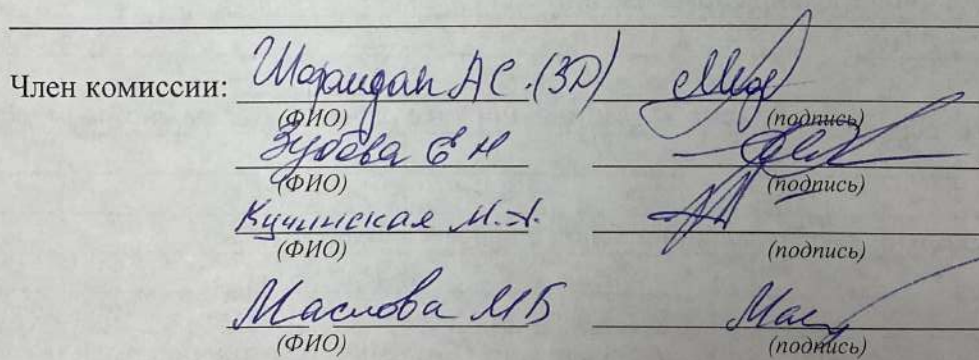 Член комиссии: А С. (ЗД)
(ФИО) (подпись)
Зубова Е Н
(ФИО) (подпись)
Кучинская М.А.
(ФИО) (подпись)
Маслова МБ Мас
(ФИО) (подпись)